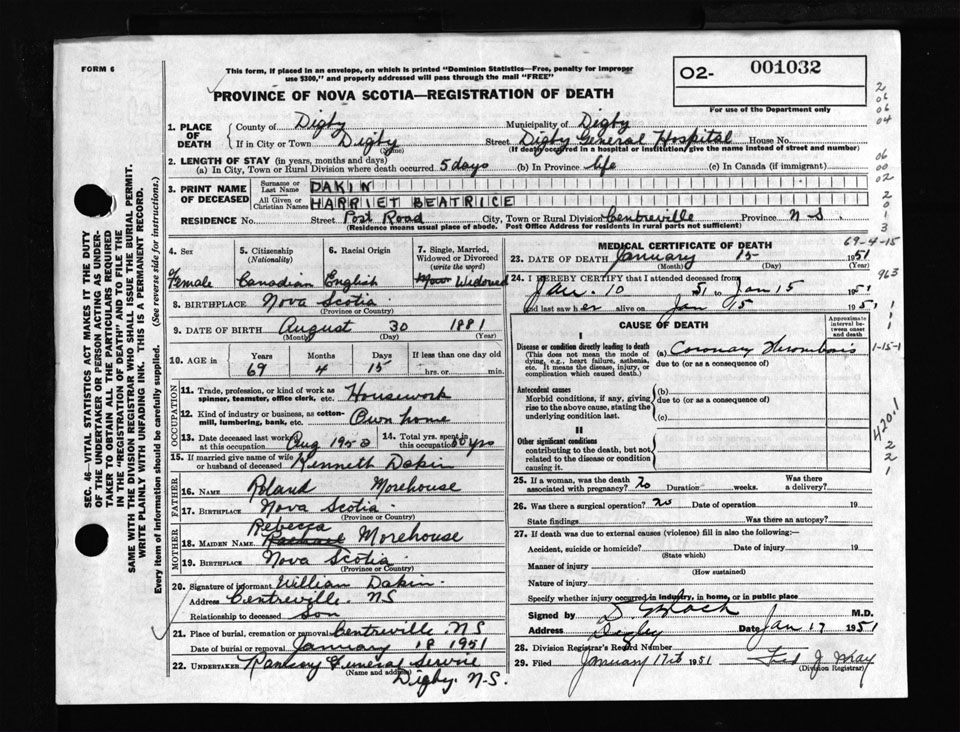 FORM 6
This form, if placed in an envelope, on which is printed "Dominion Statistics—Free, penalty for improper
use $300," and properly addressed will pass through the mail "FREE"
O2- 001032
For use of the Department only
PROVINCE OF NOVA SCOTIA—REGISTRATION OF DEATH
SEC. 46—VITAL STATISTICS ACT MAKES IT THE DUTY
OF THE UNDERTAKER OR PERSON ACTING AS UNDER-
TAKER TO OBTAIN ALL THE PARTICULARS REQUIRED
IN THE "REGISTRATION OF DEATH" AND TO FILE THE
SAME WITH THE DIVISION REGISTRAR WHO SHALL ISSUE THE BURIAL PERMIT.
WRITE PLAINLY WITH UNFADING INK. THIS IS A PERMANENT RECORD.
Every item of information should be carefully supplied. (See reverse side for instructions.)
1. PLACE OF DEATH County of Digby Municipality of Digby
If in City or Town Digby (Name) Street Digby General Hospital House No.
(If death occurred in a hospital or institution, give the name instead of street and number)
2. LENGTH OF STAY (in years, months and days)
(a) In City, Town or Rural Division where death occurred 5 days (b) In Province life (c) In Canada (if immigrant)
3. PRINT NAME OF DECEASED Surname or Last Name DAKIN
All Given or Christian Names HARRIET BEATRICE
RESIDENCE No. Street Post Road City, Town or Rural Division Centreville Province N-S.
(Residence means usual place of abode. Post Office Address for residents in rural parts not sufficient)
4. Sex Female
5. Citizenship (Nationality) Canadian
6. Racial Origin English
7. Single, Married, Widowed or Divorced (write the word) Widowed
8. BIRTHPLACE Nova Scotia
(Province or Country)
9. DATE OF BIRTH August 30 1881
(Month) (Day) (Year)
10. AGE in Years Months Days If less than one day old
69 4 15 hrs. or min.
OCCUPATION
11. Trade, profession, or kind of work as spinner, teamster, office clerk, etc. Housework
12. Kind of industry or business, as cotton-mill, lumbering, bank, etc. Own home
13. Date deceased last worked at this occupation Aug 195 14. Total yrs. spent in this occupation yrs
15. If married give name of wife or husband of deceased Kenneth Dakin
FATHER
16. NAME Roland Morehouse
17. BIRTHPLACE Nova Scotia
(Province or Country)
MOTHER
Rebecca
18. MAIDEN NAME Rachael Morehouse
19. BIRTHPLACE Nova Scotia
(Province or Country)
20. Signature of informant William Dakin.
Address Centreville. NS
Relationship to deceased Son
21. Place of burial, cremation or removal Centreville. NS
Date of burial or removal January 18 1951
22. UNDERTAKER Ramsay General Service
(Name and address) Digby. N-S.
MEDICAL CERTIFICATE OF DEATH
69-4-15
23. DATE OF DEATH January 15 1951
(Month) (Day) (Year)
24. I HEREBY CERTIFY that I attended deceased from
Jan. 10 51 to Jan 15 1951
and last saw her alive on Jan 15 1951
CAUSE OF DEATH
Approximate interval between onset and death
I
Disease or condition directly leading to death
(This does not mean the mode of dying, e.g., heart failure, asthenia, etc. It means the disease, injury, or complication which caused death.)
(a) Coronary Thrombosis
due to (or as a consequence of)
Antecedent causes
Morbid conditions, if any, giving rise to the above cause, stating the underlying condition last.
(b)
due to (or as a consequence of)
(c)
II
Other significant conditions
contributing to the death, but not related to the disease or condition causing it.
25. If a woman, was the death associated with pregnancy? no Duration weeks. Was there a delivery?
26. Was there a surgical operation? no Date of operation 19
State findings Was there an autopsy?
27. If death was due to external causes (violence) fill in also the following:—
Accident, suicide or homicide? Date of injury 19
(State which)
Manner of injury
(How sustained)
Nature of injury
Specify whether injury occurred in industry, in home, or in public place
Signed by M.D.
Address Digby Date Jan 17 1951
28. Division Registrar's Record Number
29. Filed January 17th 1951
(Division Registrar)
963
1-15-1
420.1